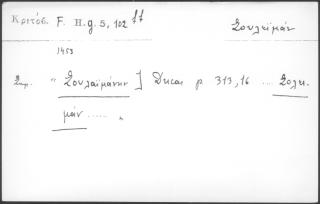 Κριτόβ. F. H. g. 5, 102 ff Σουλεϊμάν
1453
Σημ. " Σουλαϊμάνην ] Ducas p 313,16 ..... Σολι-
μάν ..... "